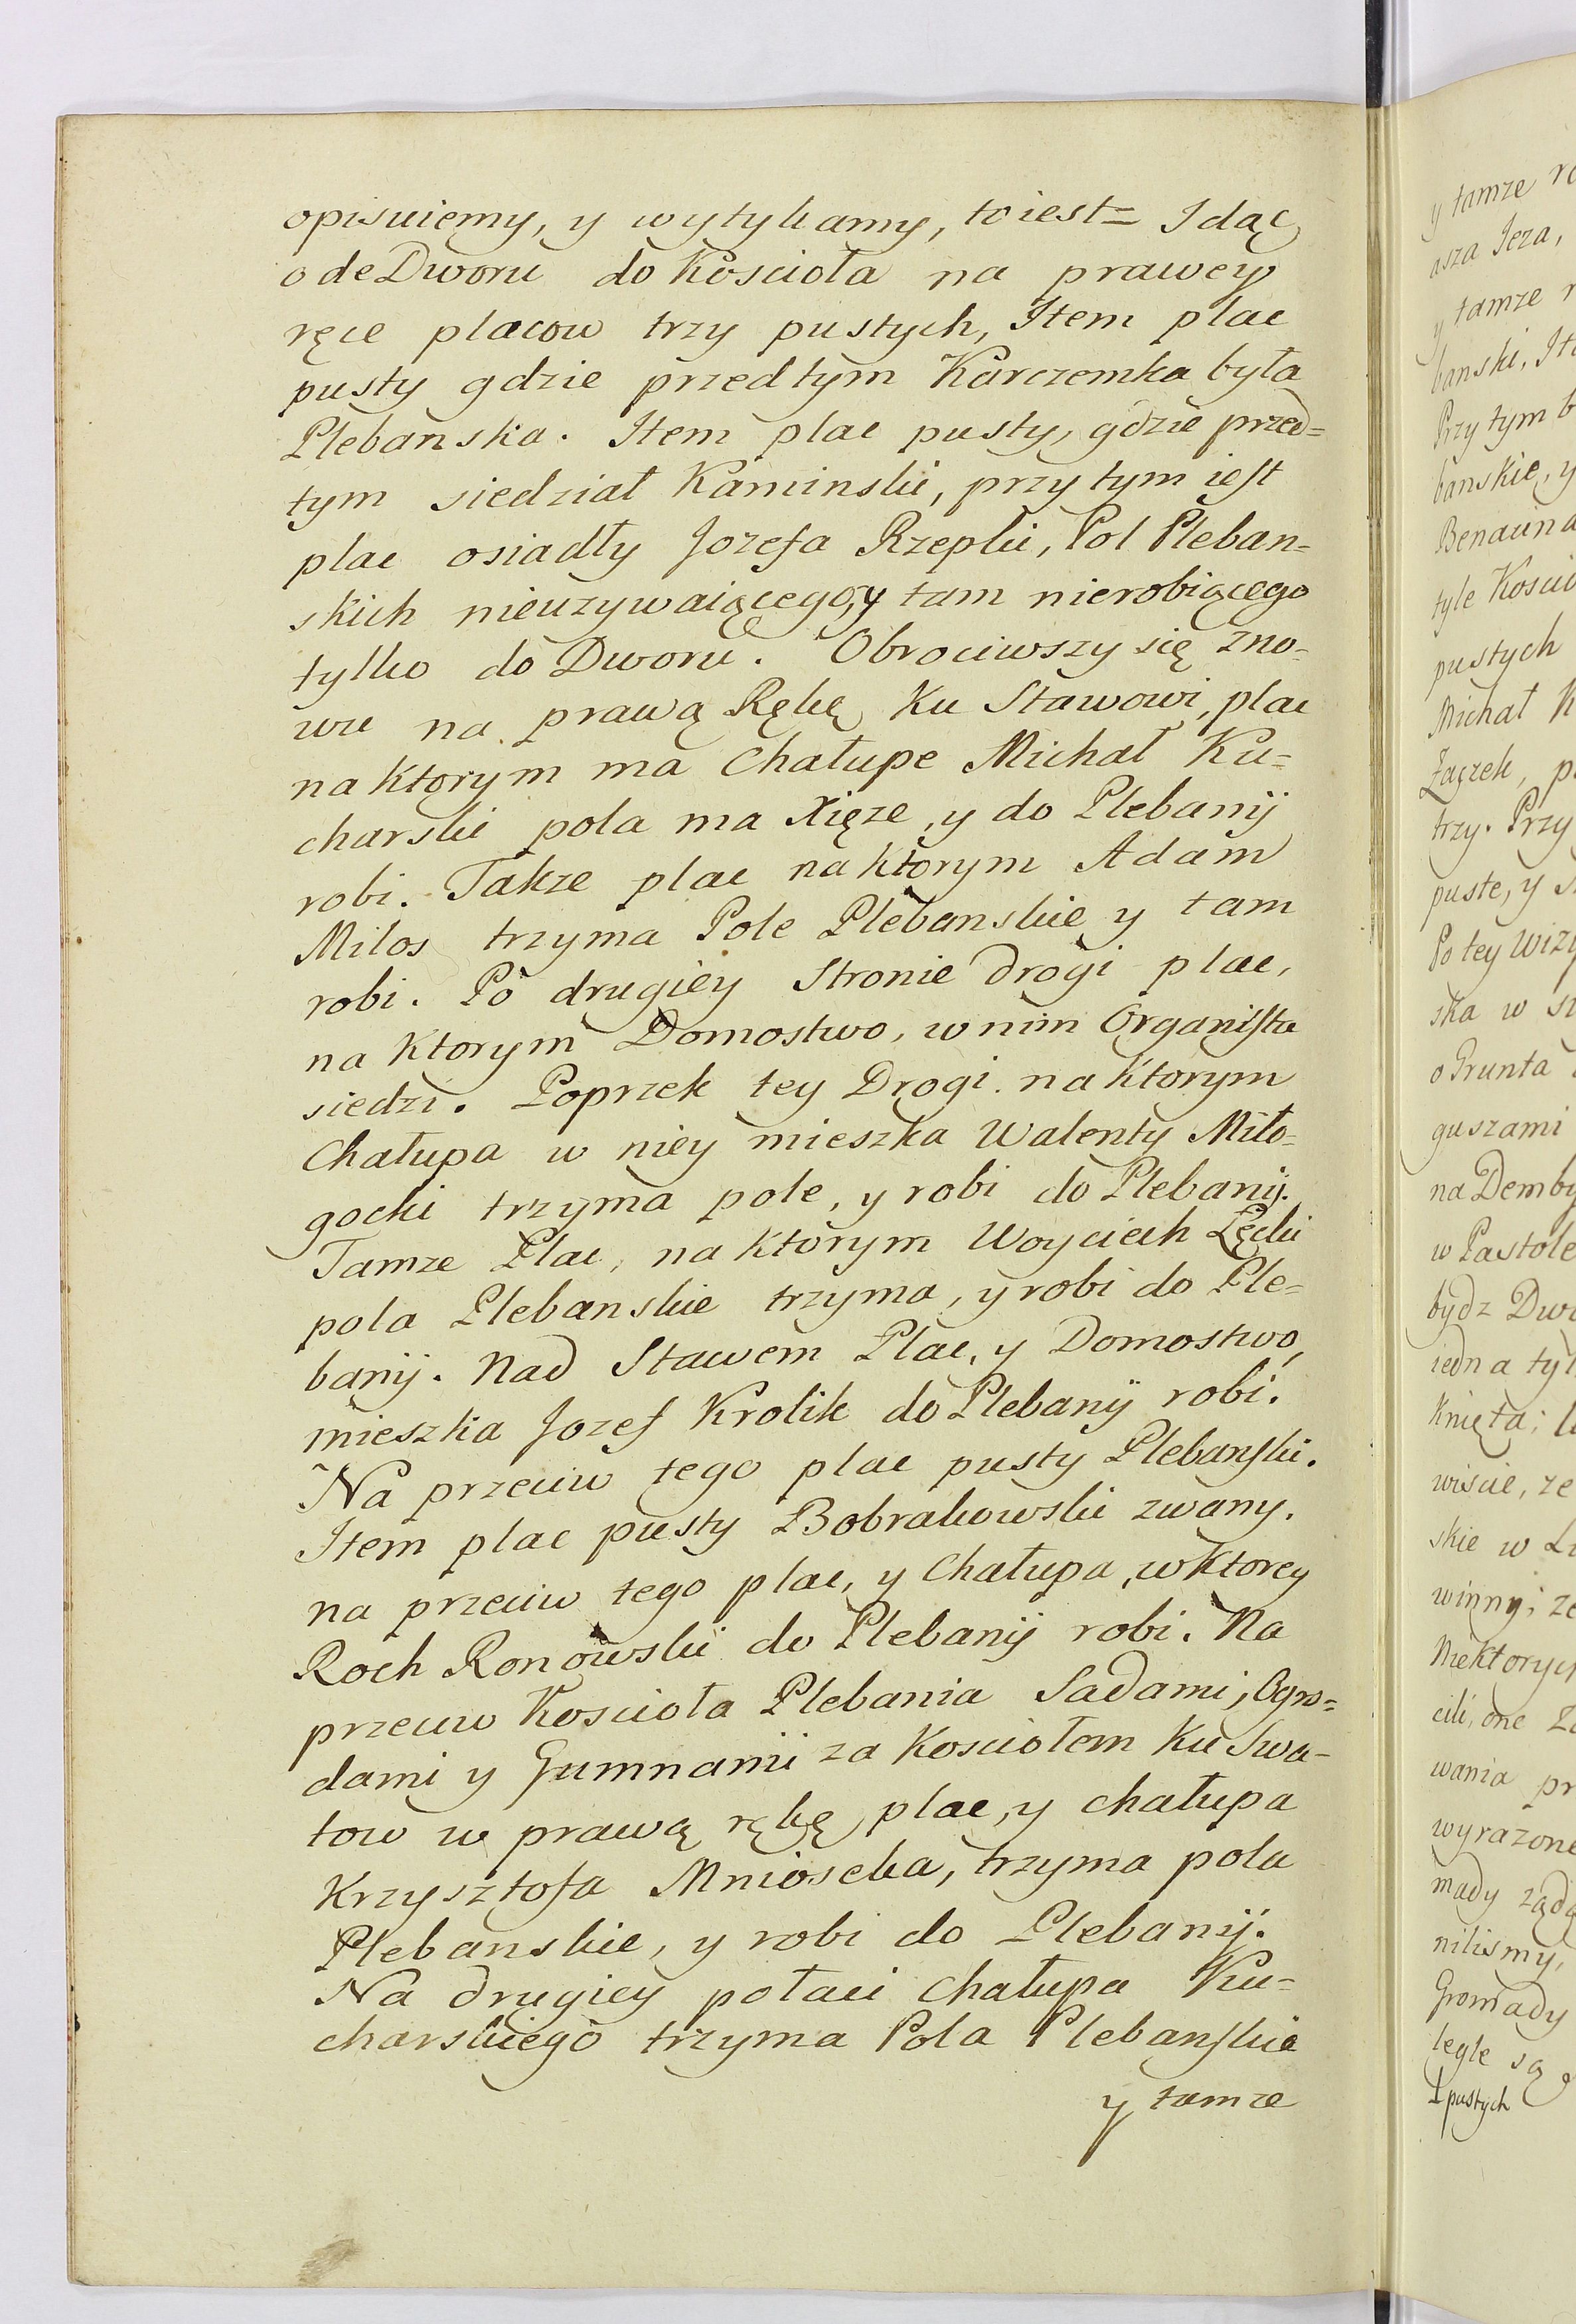 opisuiemy, y wytykamy, to iest= Idąc
odeDworu do Koscioła na prawey
ręce placow trzy pustych, Item plac
pusty gdzie przedtym Karczemka była
Plebanska. Item plac pusty, gdzie przed=
tym siedział Kaminski, przy tym iest
plac osiadły Jozefa Rzepki, Pol Pleban=
skich nieuzywaiącego, y tam nierobiącego
tylko do Dworu. Obrociwszy się zno=
wu na prawą Rękę Ku Stawowi, plac
na Ktorym ma Chałupe Michał Ku=
charski pola ma Xięze, y do Plebanij
robi. Takze plac na Ktorym Adam
Milos trzyma Pole Plebanskie y tam
robi. Po drugiey Stronie drogi plac,
na Ktorym Domostwo, w nim Organista
siedzi. Poprzek tey Drogi na Ktorym
Chałupa w niey mieszka Walenty Miło=
gocki trzyma pole, y robi do Plebanij.
Tamze Plac, na Ktorym Woyciech Lęcki
pola Plebanskie trzyma, y robi do Ple=
banij. Nad Stawem Plac, y Domostwo,
mieszka Jozef Krolik do Plebanij robi.
Na przeciw tego plac pusty Plebanski.
Item plac pusty Bobrakowski zwany.
na przeciw tego plac, y Chałupa, w Ktorey
Roch Ronowski do Plebanij robi. Na
przeciw Koscioła Plebania Sadami, Ogro=
dami y Gumnami za Kosciołem Ku Swa=
tow w prawą rękę plac, y chałupa
Krzysztofa Mnioscka, trzyma pola
Plebanskie, y robi do Plebanij.
Na drugiey połaci Chałupa Ku=
charskiego trzyma Pola Plebanskie
y tamze
y tamze
asza Jeza,
y tamze
banski, It
Przy tym b
banskie, y
tyle Kosci
pustych
Michał K
trzy. Przy
puste, y
Po tey Wizy
ska w
o Grunta
guszami
na Demby
w Pastole
bydz Dw
iedna tyl
Knięta;
wiscie, ze
skie w
winny; ze
Niektorych
cili, one
wania pr
wyrazone
mady ządą
nilismy,
Gromady
legle są
pustych